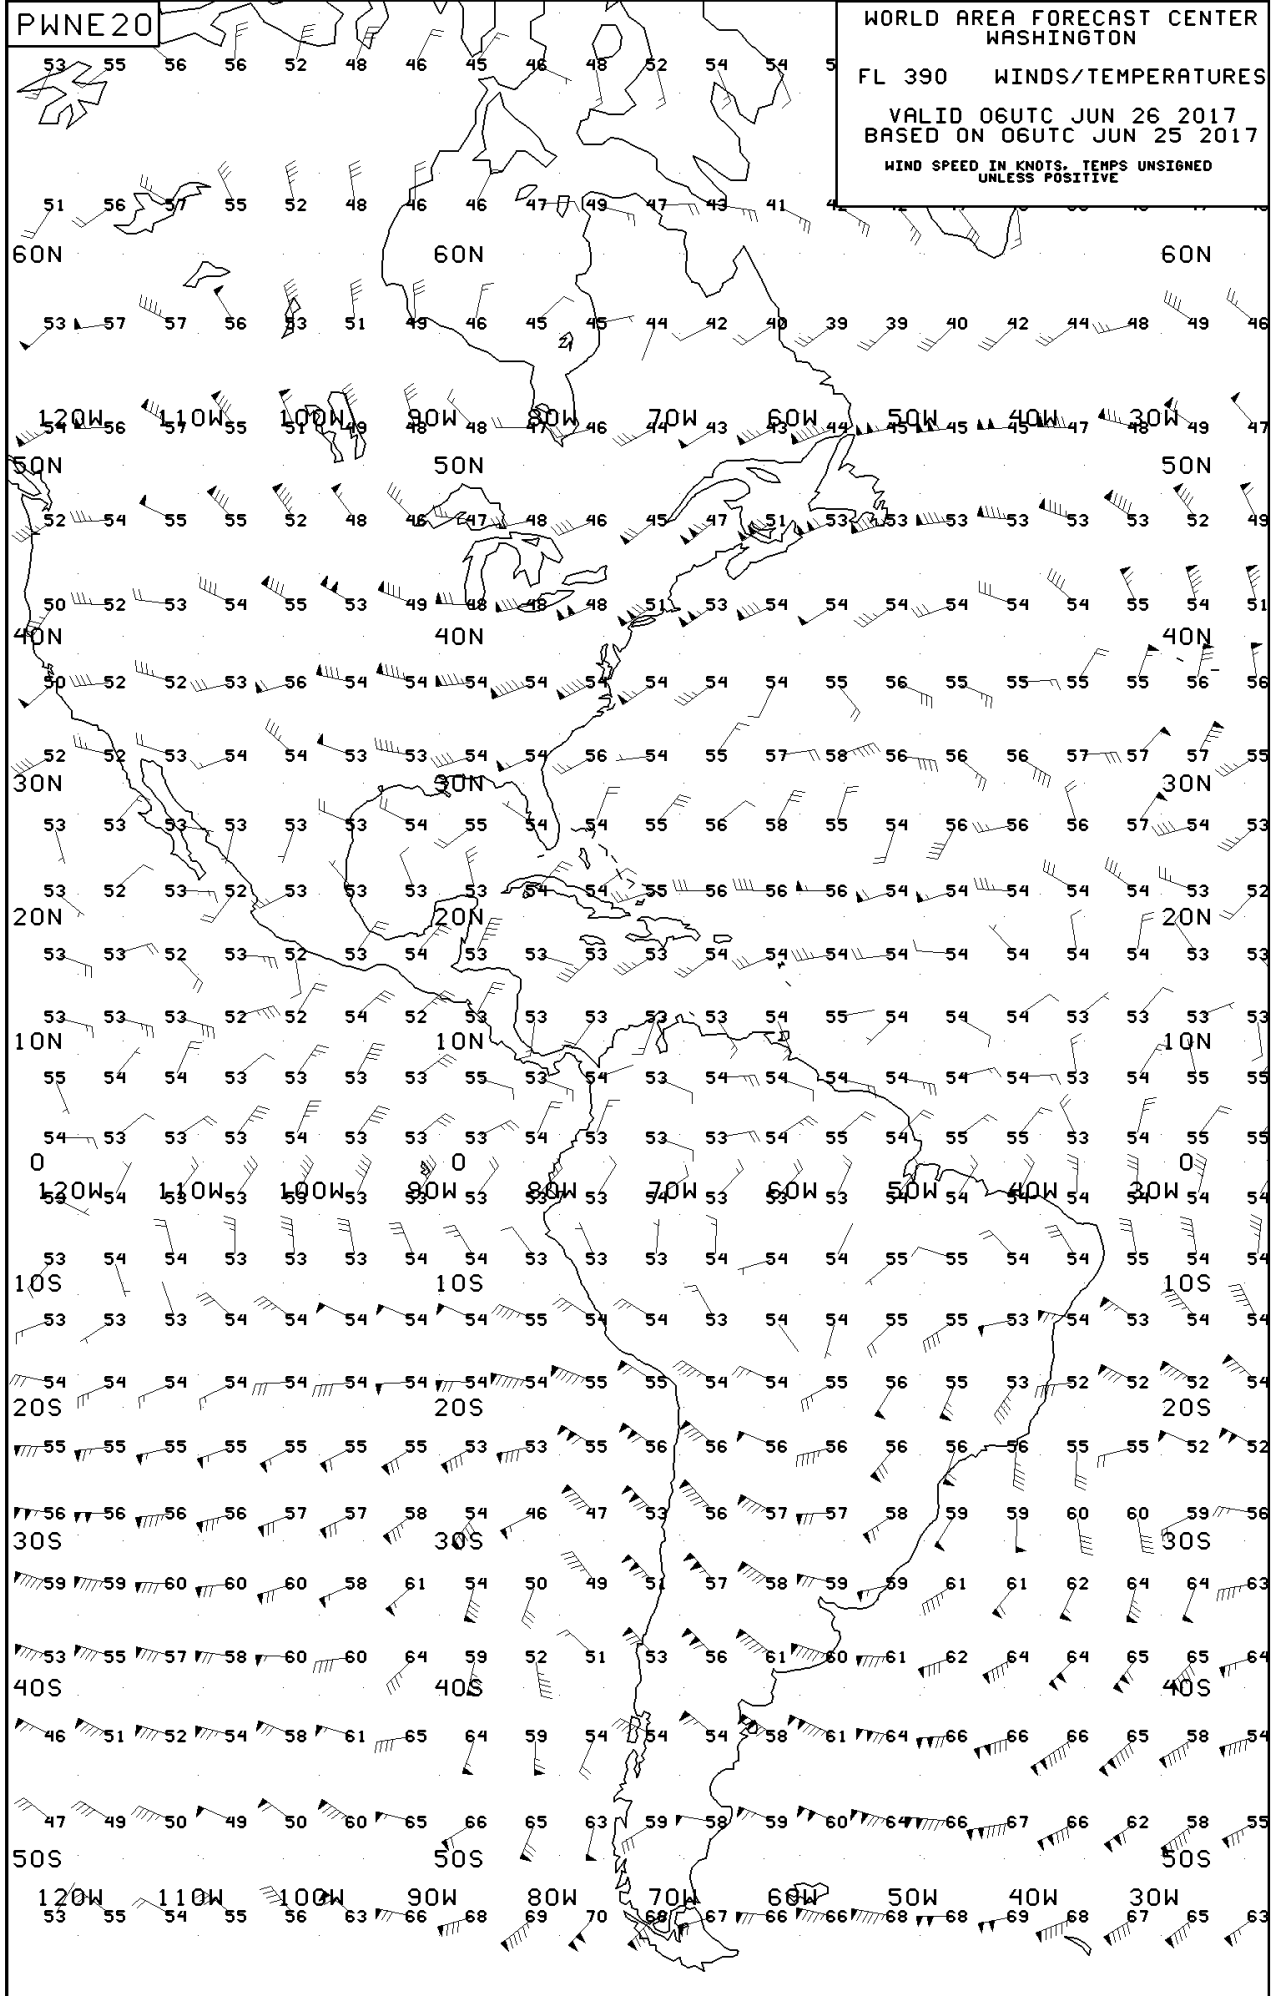 PWNE20
WORLD AREA FORECAST CENTER
WASHINGTON
FL 390 WINDS/TEMPERATURES
VALID 06UTC JUN 26 2017
BASED ON 06UTC JUN 25 2017
WIND SPEED IN KNOTS, TEMPS UNSIGNED
UNLESS POSITIVE
53 55 56 56 52 48 45 46 48 52 54 54
51 56 57 55 52 48 46 46 47 49 47 43 41
60N 60N 60N
53 57 57 56 53 51 49 46 45 45 44 42 40 39 39 40 42 44 48 49 46
120W 110W 100W 90W 80W 70W 60W 50W 40W 30W
54 56 57 55 51 49 48 48 47 46 44 43 43 44 45 45 45 47 48 49 47
50N 50N 50N
52 54 55 55 52 48 46 47 48 46 45 47 51 53 53 53 53 53 53 52 49
50 52 53 54 55 53 49 48 48 48 51 53 54 54 54 54 54 54 55 54 51
40N 40N 40N
50 52 52 53 56 54 54 54 54 54 54 54 54 55 56 55 55 55 55 56 56
52 52 53 54 54 53 53 54 54 56 54 55 57 58 56 56 56 57 57 57 55
30N 30N 30N
53 53 53 53 53 53 54 55 54 54 55 56 58 55 54 56 56 56 57 54 53
53 52 53 52 53 53 53 53 54 54 55 56 56 56 54 54 54 54 54 53 52
20N 20N 20N
53 53 52 53 52 53 54 53 53 53 53 54 54 54 54 54 54 54 54 53 53
53 53 53 52 52 54 52 53 53 53 53 53 54 55 54 54 54 53 53 53 53
10N 10N 10N
55 54 54 53 53 53 53 55 53 54 53 54 54 54 54 54 54 53 54 55 55
54 53 53 53 54 53 53 53 54 53 53 53 54 55 54 55 55 53 54 55 55
0 0 0
120W 110W 100W 90W 80W 70W 60W 50W 40W 30W
53 54 53 53 53 53 53 53 53 53 54 53 53 53 54 54 54 54 54 54 54
53 54 54 53 53 53 54 54 53 53 53 54 54 54 55 55 54 54 55 54 54
10S 10S 10S
53 53 53 54 54 54 54 54 55 54 54 53 54 54 55 55 53 54 53 54 54
54 54 54 54 54 54 54 54 54 55 55 54 54 55 56 55 53 52 52 52 54
20S 20S 20S
55 55 55 55 55 55 55 53 53 55 56 56 56 56 56 56 56 55 55 52 52
56 56 56 56 57 57 58 54 46 47 53 56 57 57 58 59 59 60 60 59 56
30S 30S 30S
59 59 60 60 60 58 61 54 50 49 51 57 58 59 59 61 61 62 64 64 63
53 55 57 58 60 60 64 59 52 51 53 56 61 60 61 62 64 64 65 65 64
40S 40S 40S
46 51 52 54 58 61 65 64 59 54 54 54 58 61 64 66 66 66 65 58 54
47 49 50 49 50 60 65 66 65 63 59 58 59 60 64 66 67 66 62 58 55
50S 50S 50S
120W 110W 100W 90W 80W 70W 60W 50W 40W 30W
53 55 54 55 56 63 66 68 69 70 68 67 66 66 68 68 69 68 67 65 63